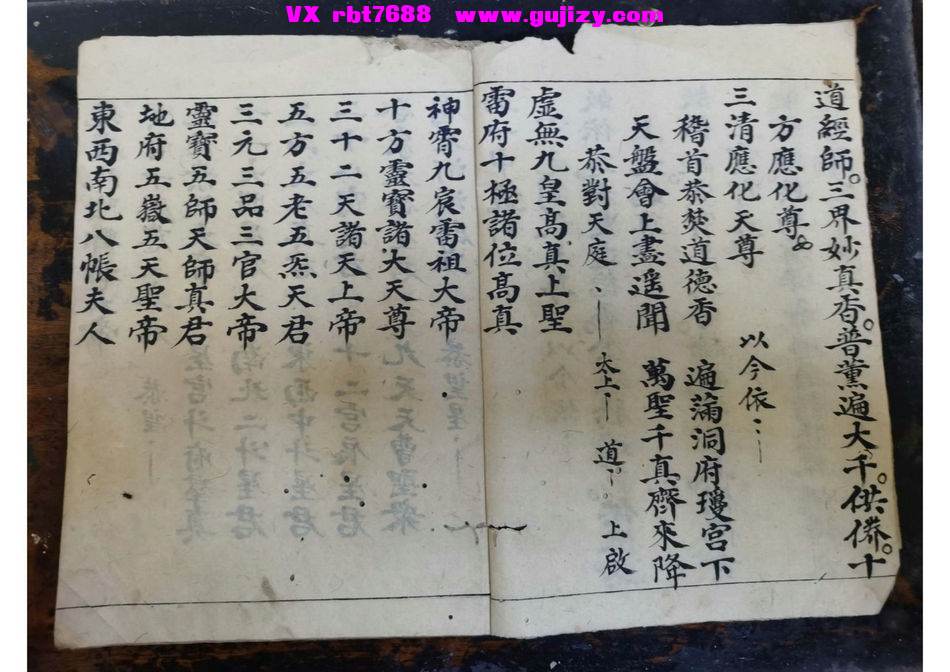 VX rbt7688 www.gujizy.com
道經師。三界妙真香。普薰遍大千。供養。十
方應化尊
三清應化天尊 以今依
稽首恭焚道德香 遍滿洞府瓊宮下
天盤會上盡遥聞 萬聖千真齊來降
恭對天庭 太上 道 上啟
虛無九皇高真上聖
雷府十極諸位高真
神霄九宸雷祖大帝
十方靈寶諸大天尊
三十二天諸天上帝
五方五老五炁天君
三元三品三官大帝
靈寶五師天師真君
地府五嶽五天聖帝
東西南北八帳夫人